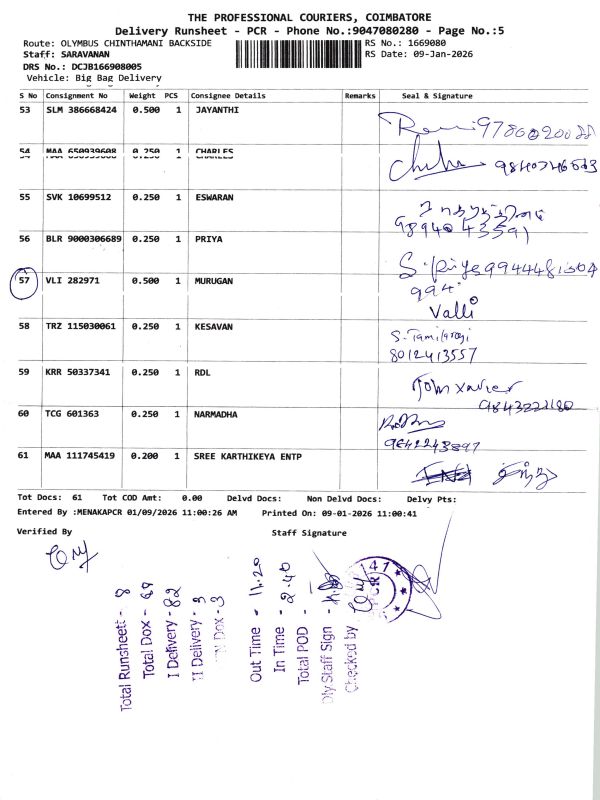 THE PROFESSIONAL COURIERS, COIMBATORE
Delivery Runsheet - PCR - Phone No.:9047080280 - Page No.:5
Route: OLYMBUS CHINTHAMANI BACKSIDE
RS No.: 1669080
Staff: SARAVANAN
RS Date: 09-Jan-2026
DRS No.: DCJB166908005
Vehicle: Big Bag Delivery
S No Consignment No Weight PCS Consignee Details Remarks Seal & Signature
53 SLM 386668424 0.500 1 JAYANTHI
54 MAA 650939608 0.250 1 CHARLES
9840746663
55 SVK 10699512 0.250 1 ESWARAN
9894043591
56 BLR 9000306689 0.250 1 PRIYA
S. Priya
57 VLI 282971 0.500 1 MURUGAN
994
Valli
58 TRZ 115030061 0.250 1 KESAVAN
8012413557
59 KRR 50337341 0.250 1 RDL
John Xavier
9843222180
60 TCG 601363 0.250 1 NARMADHA
9842243897
61 MAA 111745419 0.200 1 SREE KARTHIKEYA ENTP
Tot Docs: 61 Tot COD Amt: 0.00 Delvd Docs: Non Delvd Docs: Delvy Pts:
Entered By :MENAKAPCR 01/09/2026 11:00:26 AM Printed On: 09-01-2026 11:00:41
Verified By Staff Signature
Total Runsheett - 8
Total Dox -
I Delivery - 82
II Delivery - 3
Dox - 3
Out Time - 11.20
In Time - 2.40
Total POD -
Dly.Staff Sign -
Checked by
47
PCR